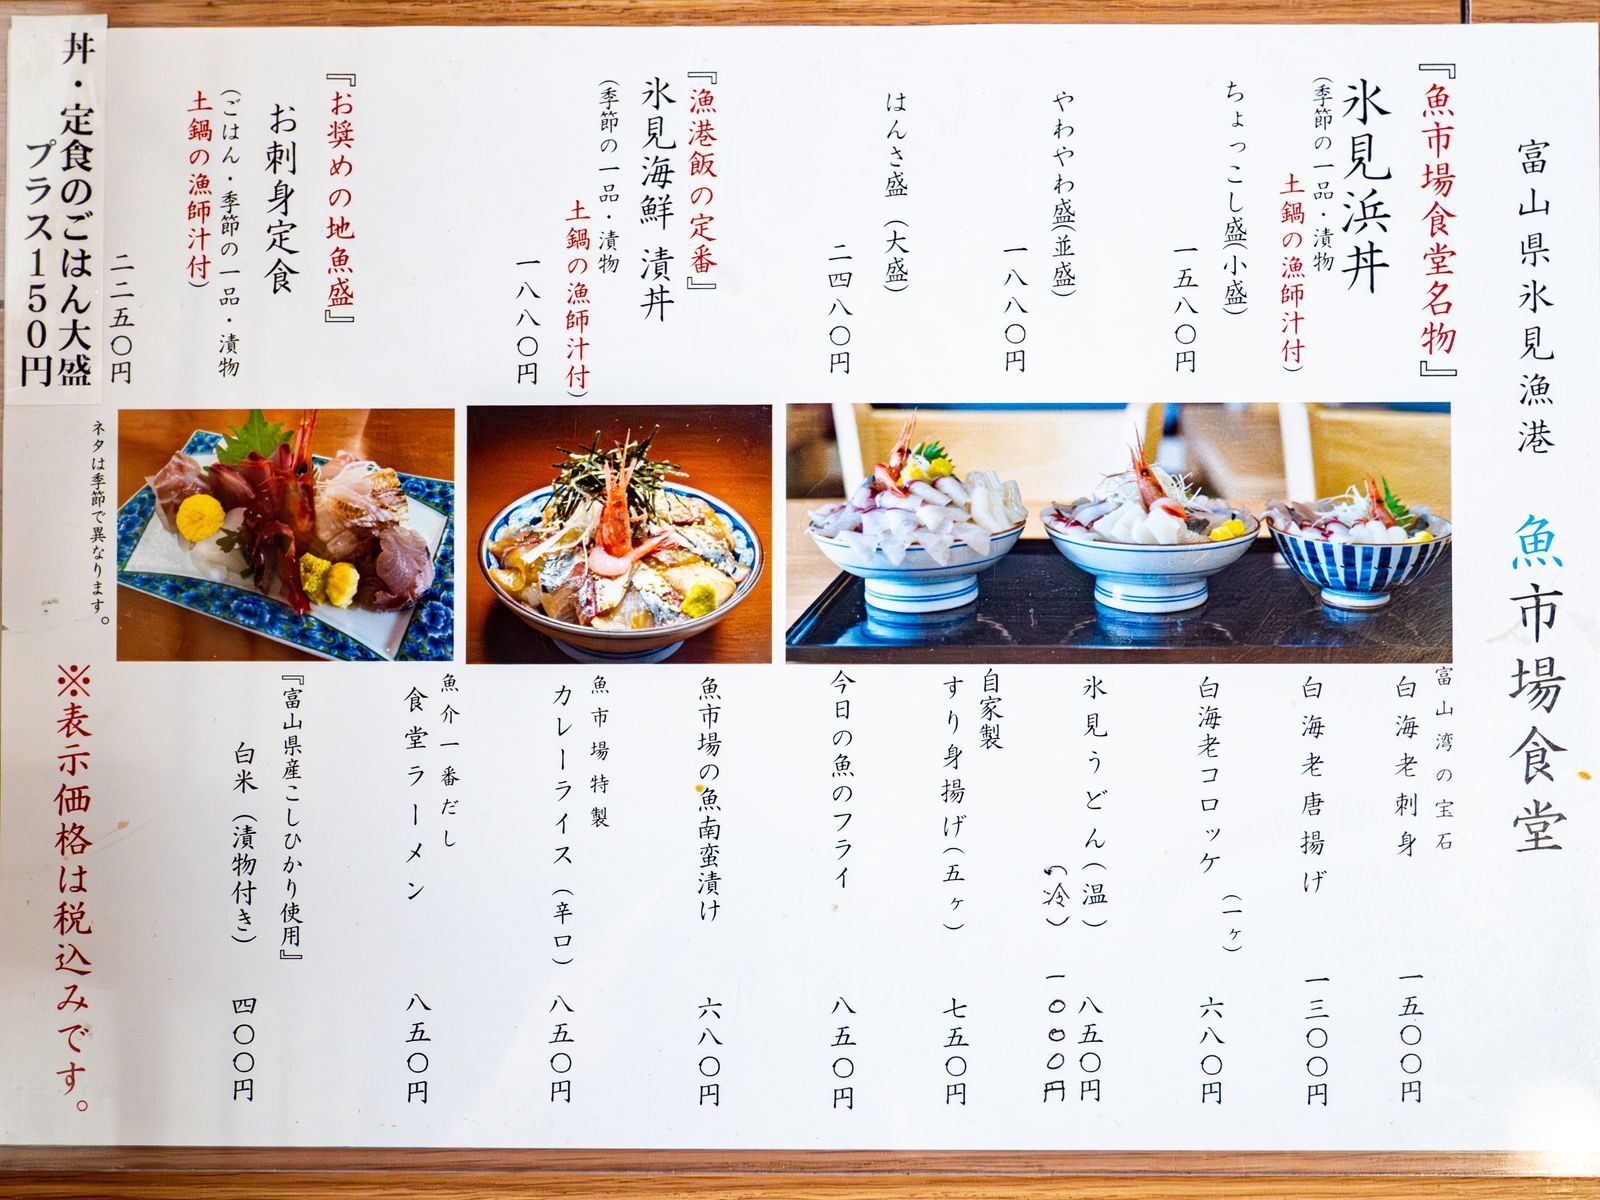 富山県氷見漁港 魚市場食堂
『魚市場食堂名物』
氷見浜丼
(季節の一品・漬物
土鍋の漁師汁付)
ちょっこし盛(小盛)
一五八〇円
やわやわ盛(並盛)
一八八〇円
はんさ盛(大盛)
二四八〇円
『漁港飯の定番』
氷見海鮮 漬丼
(季節の一品・漬物
土鍋の漁師汁付)
一八八〇円
『お奨めの地魚盛』
お刺身定食
(ごはん・季節の一品・漬物
土鍋の漁師汁付)
二二五〇円
丼・定食のごはん大盛
プラス150円
富山湾の宝石
白海老刺身 一五〇〇円
白海老唐揚げ 一三〇〇円
白海老コロッケ (一ヶ) 六八〇円
氷見うどん(温) 八五〇円
(冷) 一〇〇〇円
自家製
すり身揚げ(五ヶ) 七五〇円
今日の魚のフライ 八五〇円
魚市場の魚南蛮漬け 六八〇円
魚市場特製
カレーライス(辛口) 八五〇円
魚介一番だし
食堂ラーメン 八五〇円
『富山県産こしひかり使用』
白米(漬物付き) 四〇〇円
ネタは季節で異なります。
※表示価格は税込みです。